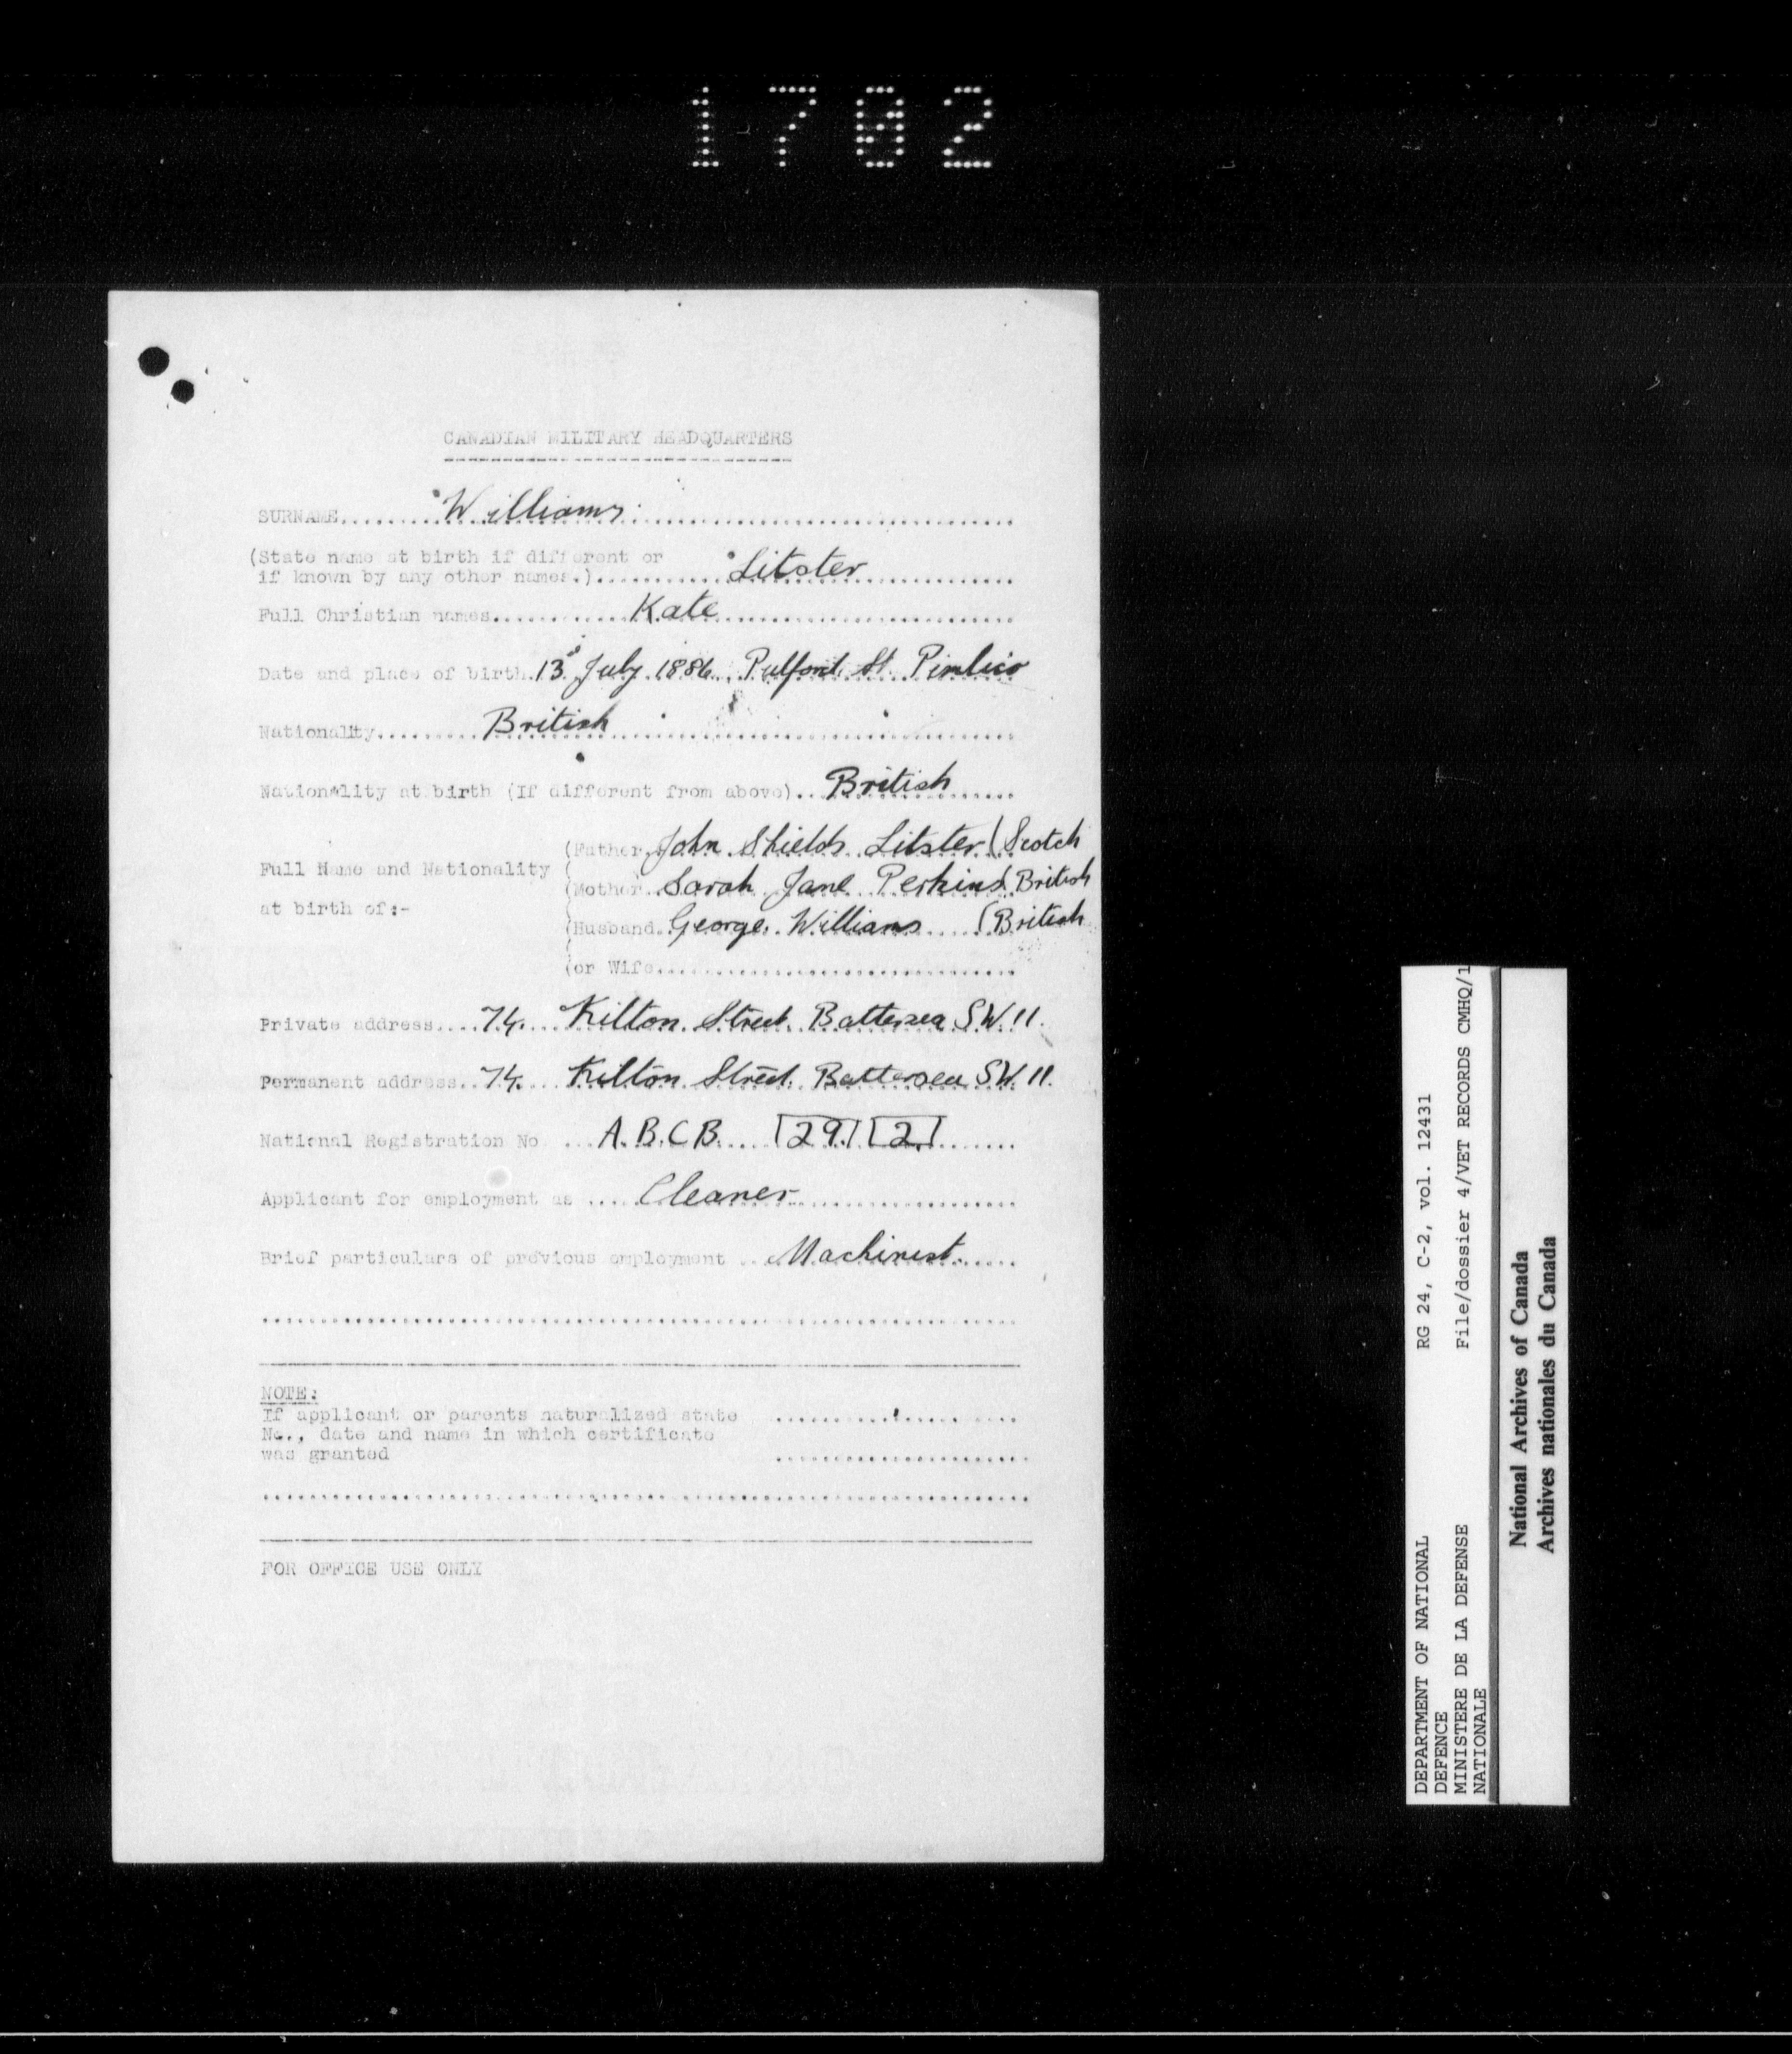 1702
CANADIAN MILITARY HEADQUARTERS
SURNAME.......Williams.......
(State name at birth if different or
if known by any other names.).......Litster.......
Full Christian names.......Kate.......
Date and place of birth.13 July.1886...Pulford St. Pimlico
Nationality.......British.......
Nationality at birth (If different from above)..British.......
(Father.John Shields Litster (Scotch
Full Name and Nationality (
(Mother..Sarah Jane Perkins( British
at birth of:-
(Husband.George Williams.....(British
(
(or Wife.......
Private address....74...Kilton Street Battersea S.W.11.
Permanent address..74...Kilton Street Battersea S.W.11.
National Registration No ...A.B.C B.... 29. 2.......
Applicant for employment as ....Cleaner.......
Brief particulars of previous employment ...Machinist.......
NOTE:
If applicant or parents naturalized state .......
No., date and name in which certificate
was granted .......
FOR OFFICE USE ONLY
DEPARTMENT OF NATIONAL RG 24, C-2, vol. 12431
DEFENCE
MINISTERE DE LA DEFENSE File/dossier 4/VET RECORDS CMHQ/1
NATIONALE
National Archives of Canada
Archives nationales du Canada